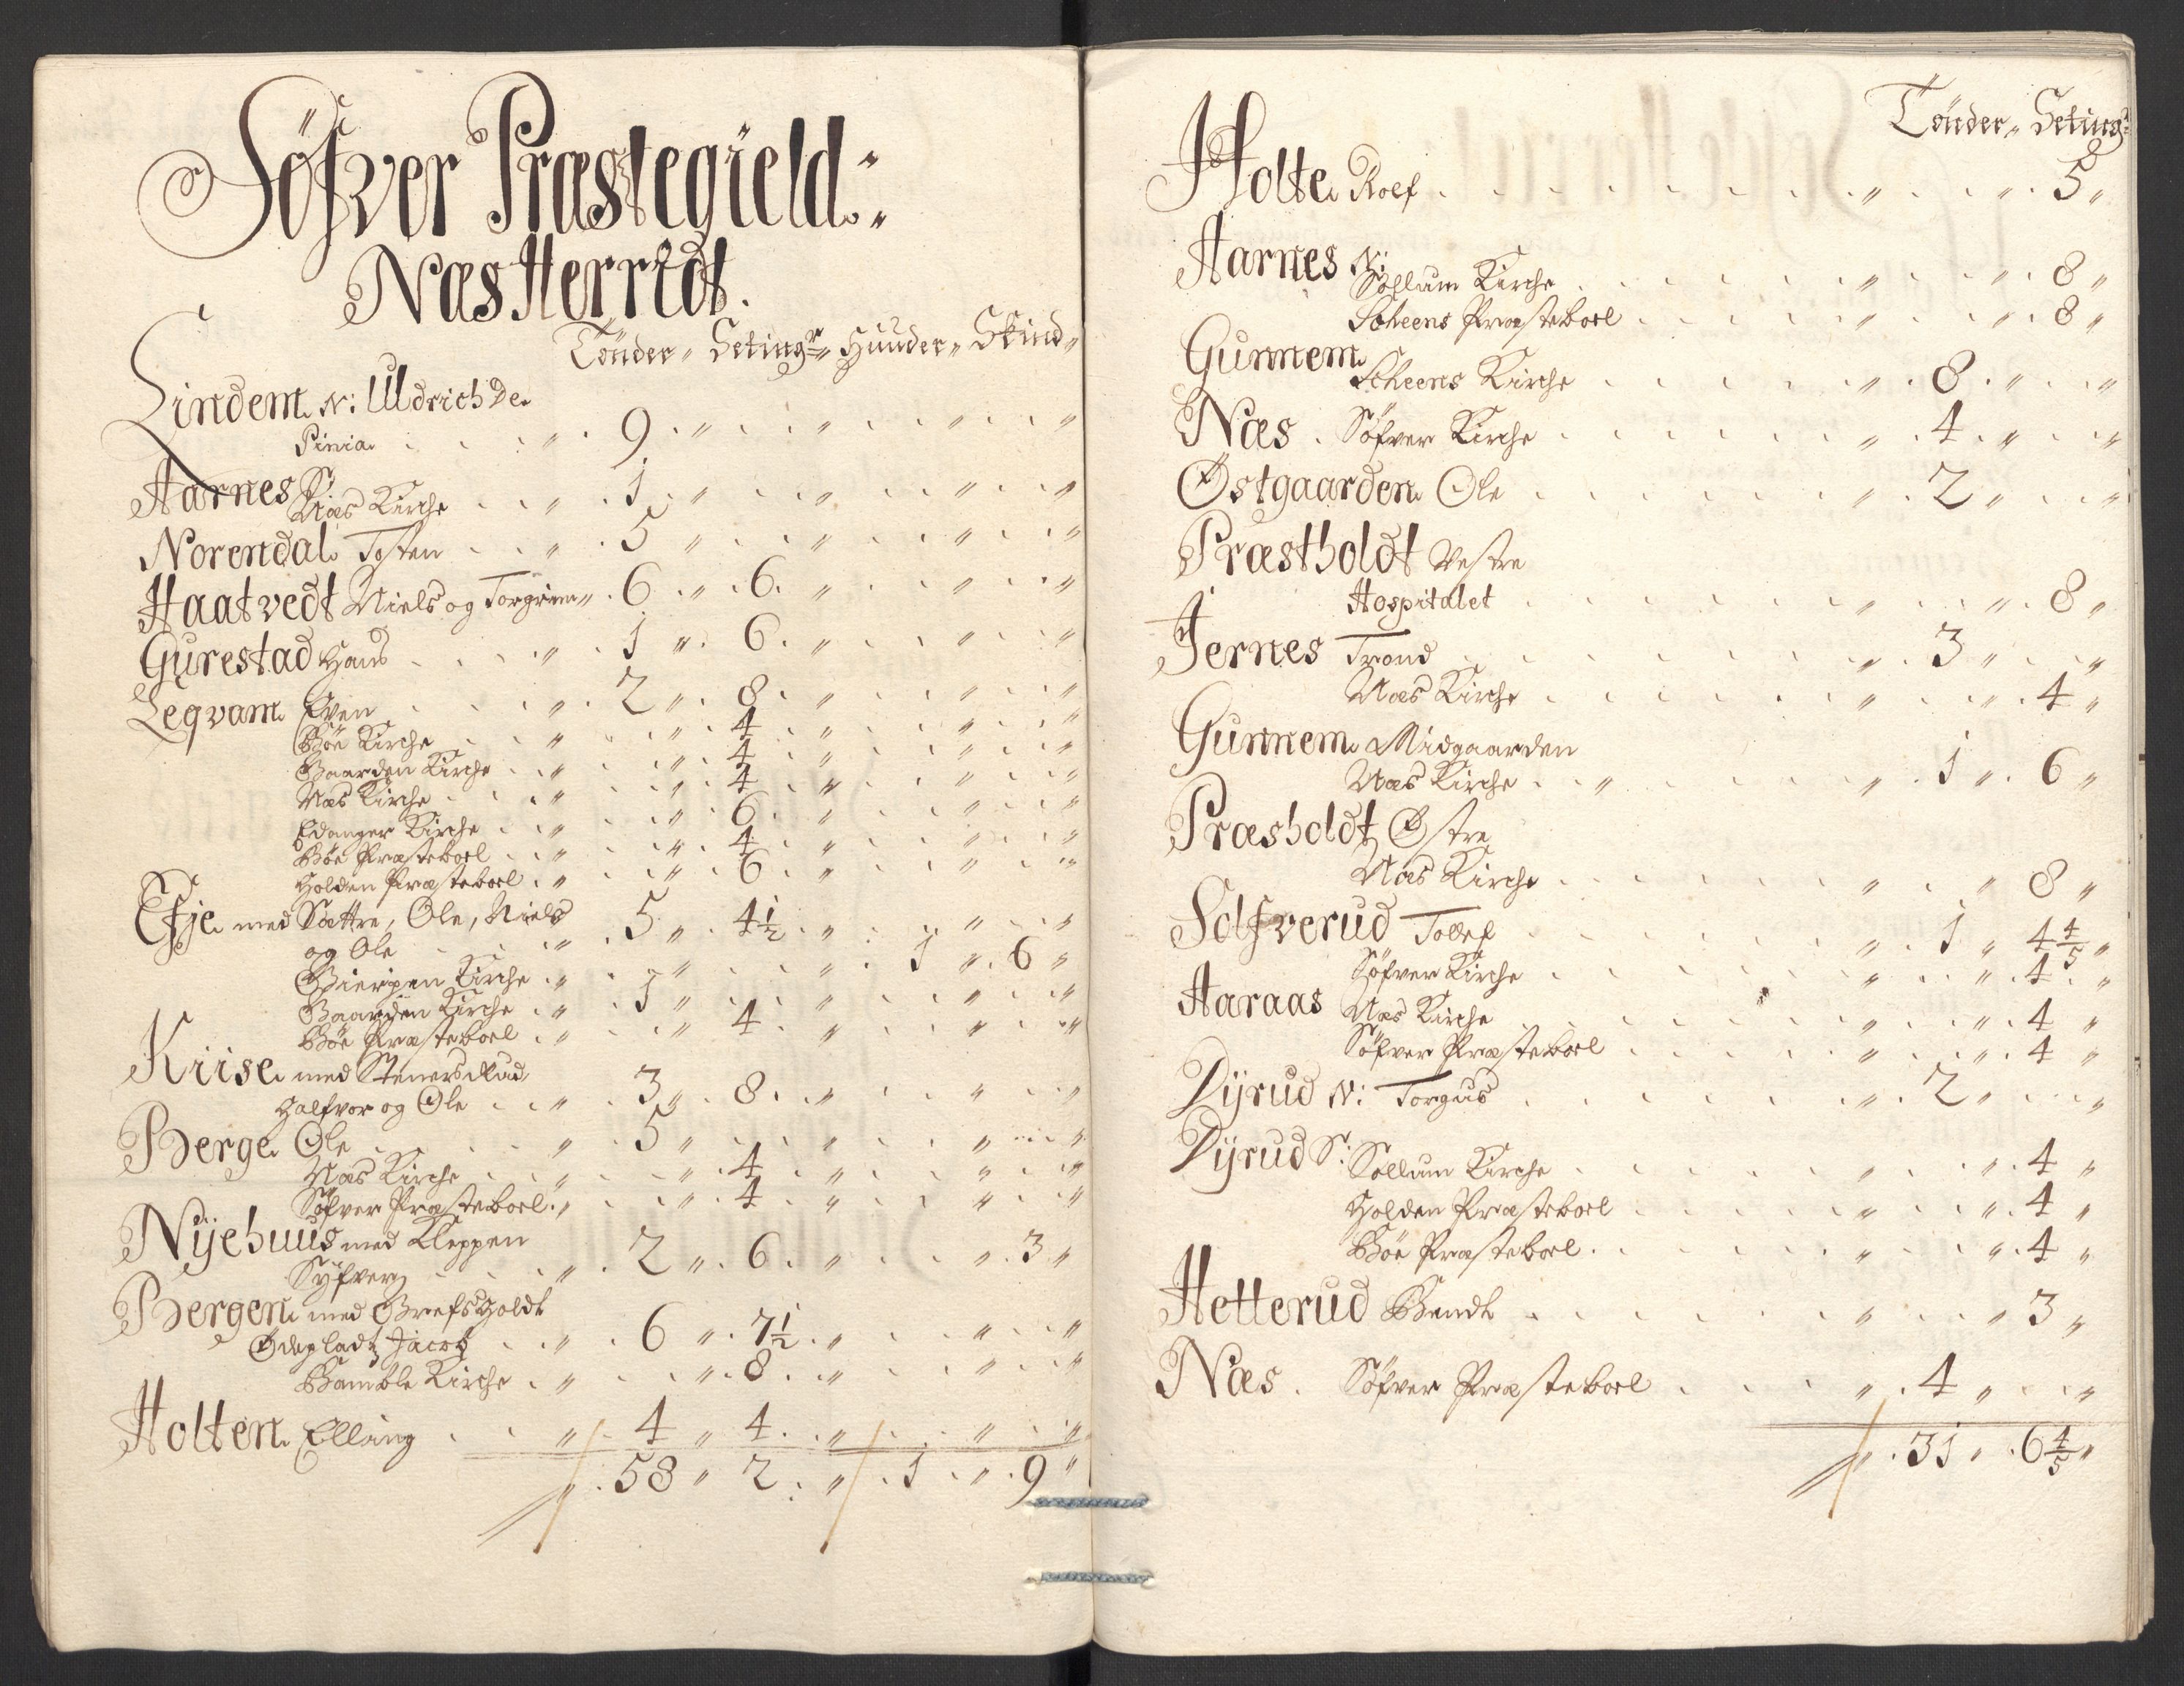 Söfver Præstegield
Næs Herridt.
Tönder Setingr Huuder Skind
Lindem N: Uldrich De
Pinia 9
Aarnes S:
Næs Kirche 1
Norendal Tosten 5
Haatvedt Niels og Torgrim 6 6
Gurestad Hans 1 6
Legvam Even 2 8
Böe Kirche 4
Gaarden Kirche 4
Næs Kirche 4
Edanger Kirche 6
Böe Præsteboel 4
Holden Præsteboel 6
Efje med Sættre, Ole, Niels
og Ole 5 4½
Gierpen Kirche 1 6
Gaarden Kirche 1
Böe Præsteboel 4
Kriise med StenersRud
Halfvor og Ole 3 8
Berge Ole 5
Næs Kirche 4
Söfver Præsteboel 4
Nÿehuus med Kleppen
Sÿfver 2 6 3
Bergen med Grefsholdt
Ödepladtz Jacob 6 7½
Bamble Kirche 8
Holten Elling 4 4
58 2 1 9
Tönder Setingr
Holte Roef 5
Aarnes N:
Söllum Kirche 8
Scheens Præsteboel 8
Gunnem
Scheens Kirche 8
Næs Söfver Kirche 4
Østgaarden Ole 2
Præstholdt Vestre
Hospitalet 8
Jernes Trond 3
Næs Kirche 4
Gunnem Midgaarden
Næs Kirche 1 6
Præsholdt Østre
Næs Kirche 8
Solfverud Tollef 1 4 4/5
Söfver Kirche 4
Aaraas Næs Kirche 4
Söfver Præsteboel 4
Dÿrud N: Torgus 2
Dÿrud S: Sollum Kirche 4
Holden Præsteboel 4
Böe Præsteboel 4
Hetterud Bendt 3
Næs Söfver Præsteboel 4
31 6 4/5